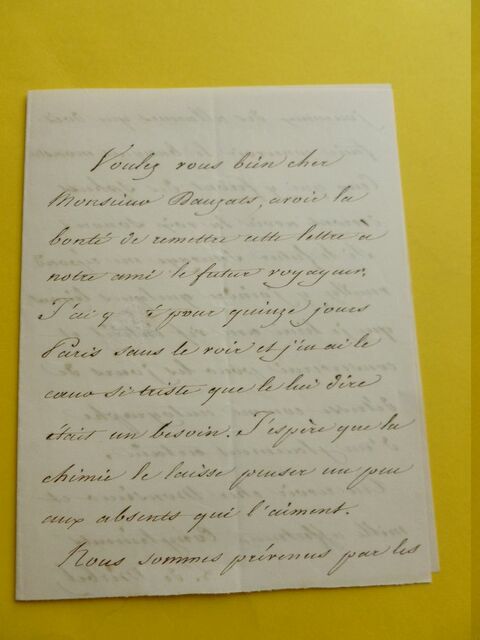 Voulez vous bien cher
Monsieur Dauzats, avoir la
bonté de remettre cette lettre a
notre ami le futur voyageur.
J'ai q é pour quinze jours
Paris sans le voir et j'en ai le
cœur si triste que le lui dire
était un besoin. J'espère que la
chimie le laisse penser un peu
aux absents qui l'aiment.
Nous sommes prévenus par les